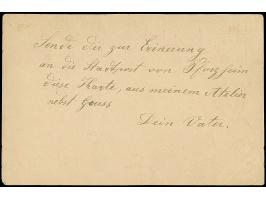 Sende dir zur Erinerung
an die Stadtpost von Pforzheim
diese Karte, aus meinem Atelier
nebst Gruss
Dein Vater.